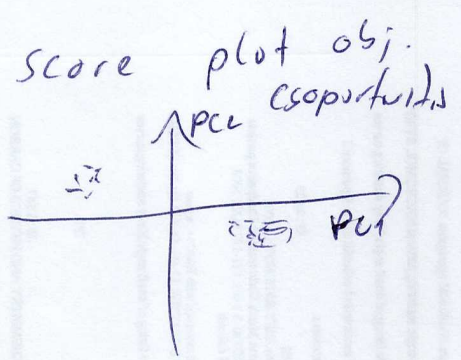 score plot obj.
csoportosítás
PC2
PC1